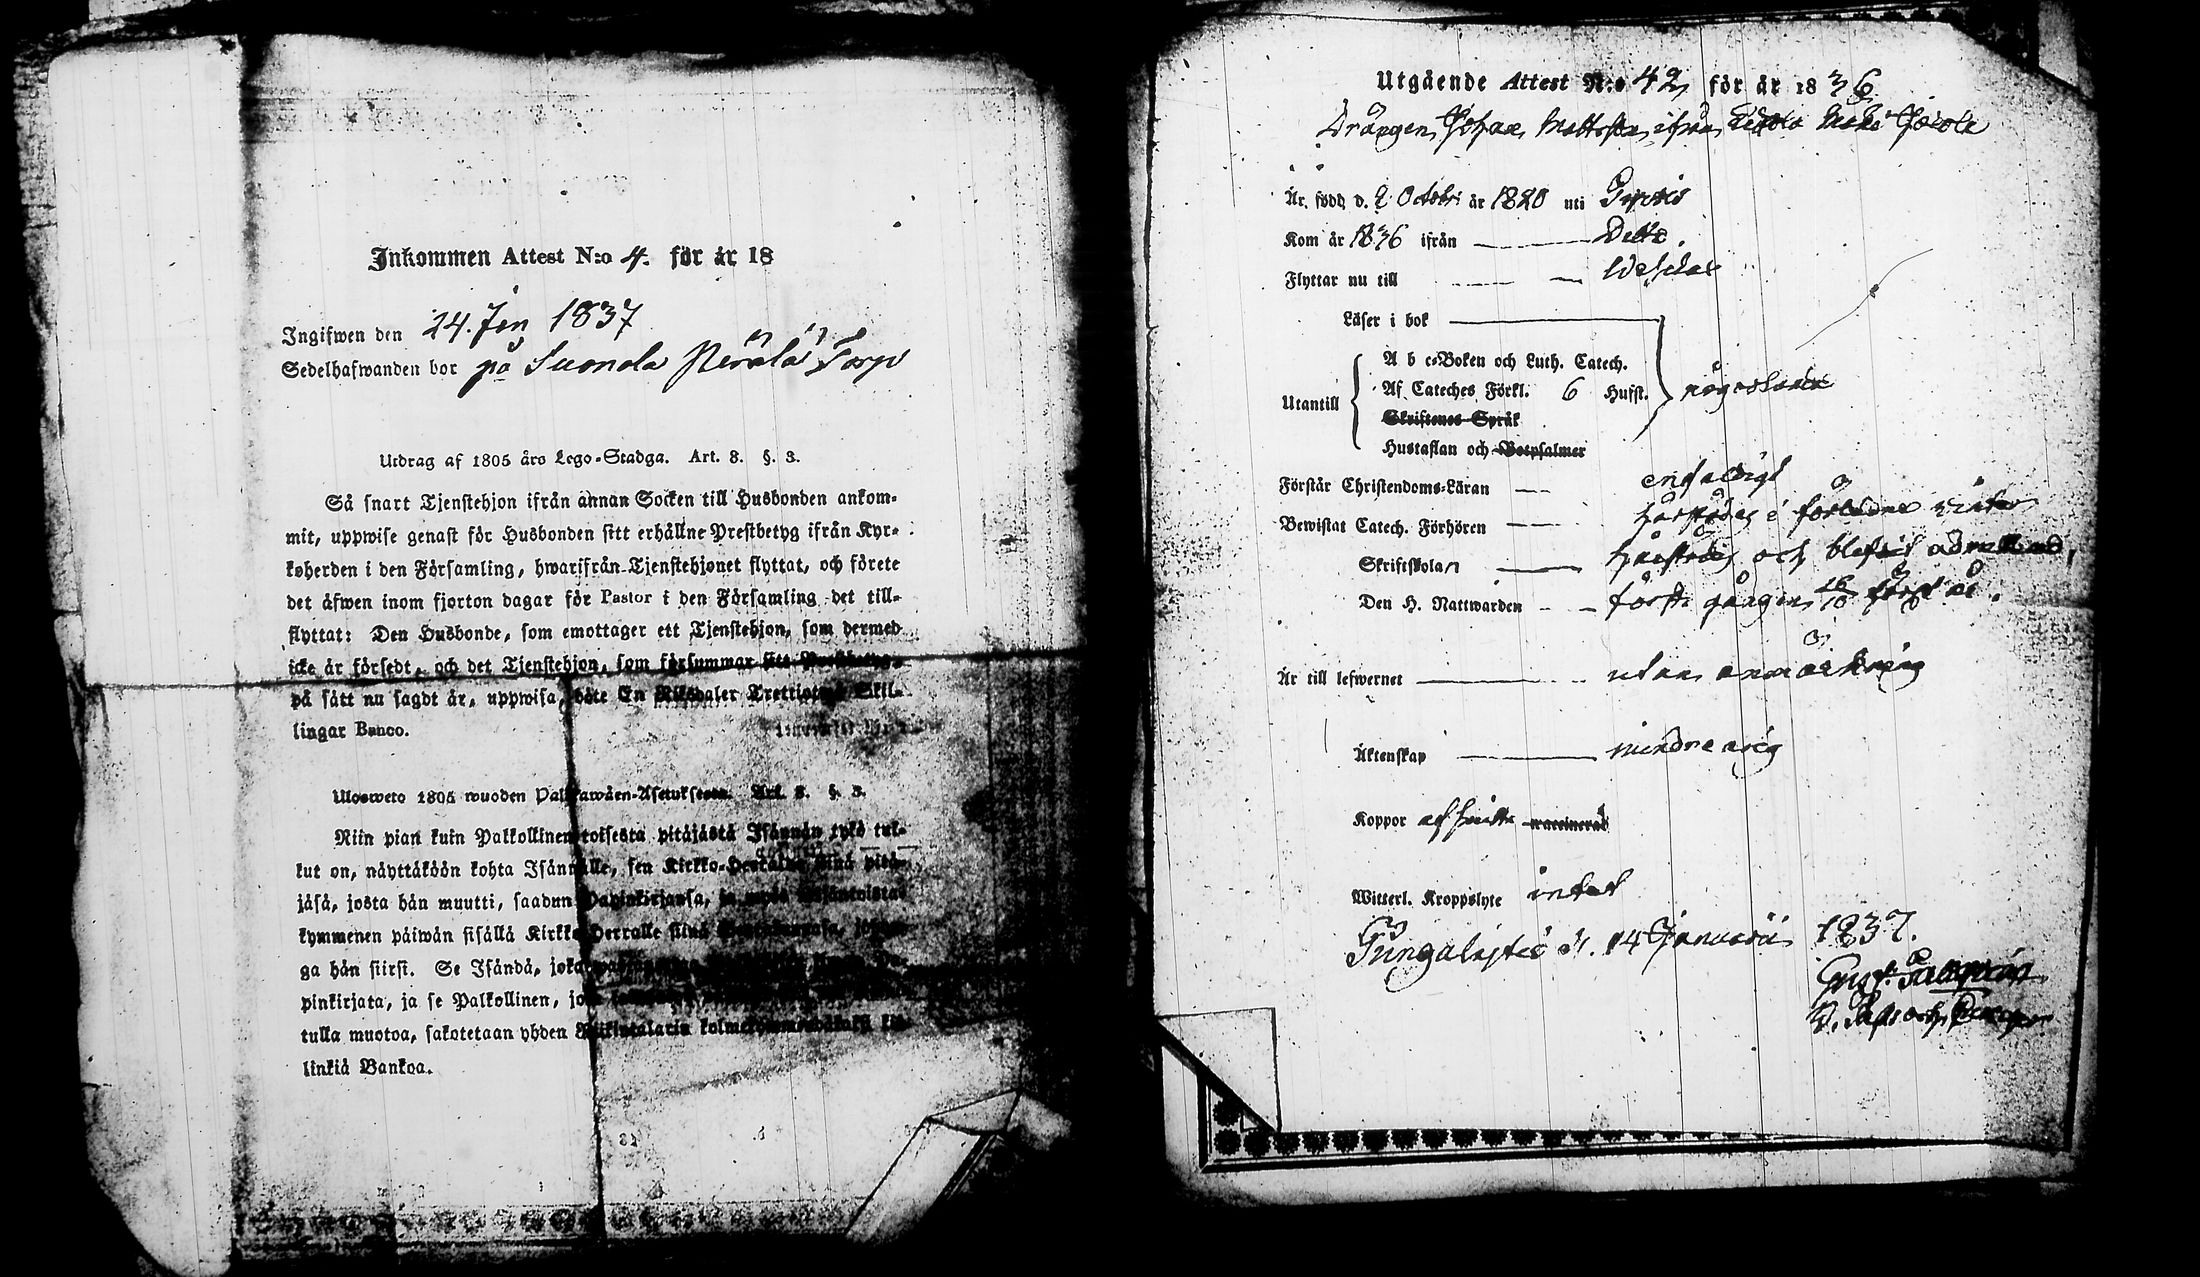 Inkommen Attest N:o 4. för år 18
Ingifwen den 24. Jan 1837
Sedelhafwanden bor på Suonola Perälä Torp
Utdrag af 1805 års Lego-Stadga. Art. 8. §. 3.
Så snart Tjenstehjon ifrån annan Socken till Husbonden ankom-
mit, uppwise genast för Husbonden sitt erhållne Prestbetyg ifrån Kyr-
koherden i den Församling, hwarifrån Tjenstehjonet flyttat, och förete
det äfwen inom fjorton dagar för Pastor i den Församling det till-
flyttat: Den Husbonde, som emottager ett Tjenstehjon, som dermed
icke är försedt, och det Tjenstehjon, som försummar sitt
på sätt nu sagdt är, uppwisa, böte En Riksdaler Trettiotwå Skil-
lingar Banco.
Ulosweto 1805 wuoden Palkkawäen-Asetuksesta. Art. 8. §. 3.
Niin pian kuin Palkollinen toisesta pitäjästä Isännän tykö tul-
kut on, näyttäköön kohta Isännälle, sen Kirkko-Herralta siinä pitä-
jäsä, josta hän muutti, saadun Papinkirjansa, ja
kymmenen päiwän sisällä Kirkko-Herralle siinä
ga hän siirsi. Se Isändä, joka
pinkirjata, ja se Palkollinen, joka
tulla muotoa, sakotetaan yhden Riikintalarin kolmekymmendäkaksi kil-
linkiä Bankoa.
Utgående Attest N:o 42 för år 1836
Drängen Johan Mattsson ifrån
Är född d. 2 Octobr: år 1820 uti
Kom år 1836 ifrån Ditto.
Flyttar nu till
Läser i bok
Utantill
A b c-Boken och Luth. Catech.
Af Cateches Förkl. 6 Hufst.
någorlunda
Skriftenes Språk
Hustaflan och Botpsalmer
Förstår Christendoms-Läran enfaldigt
Bewistat Catech. Förhören härstädes i förledne winter
Skriftskolan härstädes och blifwit admitterad
Den H. Nattwarden första gången
Är till lefwernet utan anmärkning
Äktenskap minderårig
Koppor vaccinerad
Witterl. Kroppslyte intet
d. 14 Januarii 1837.